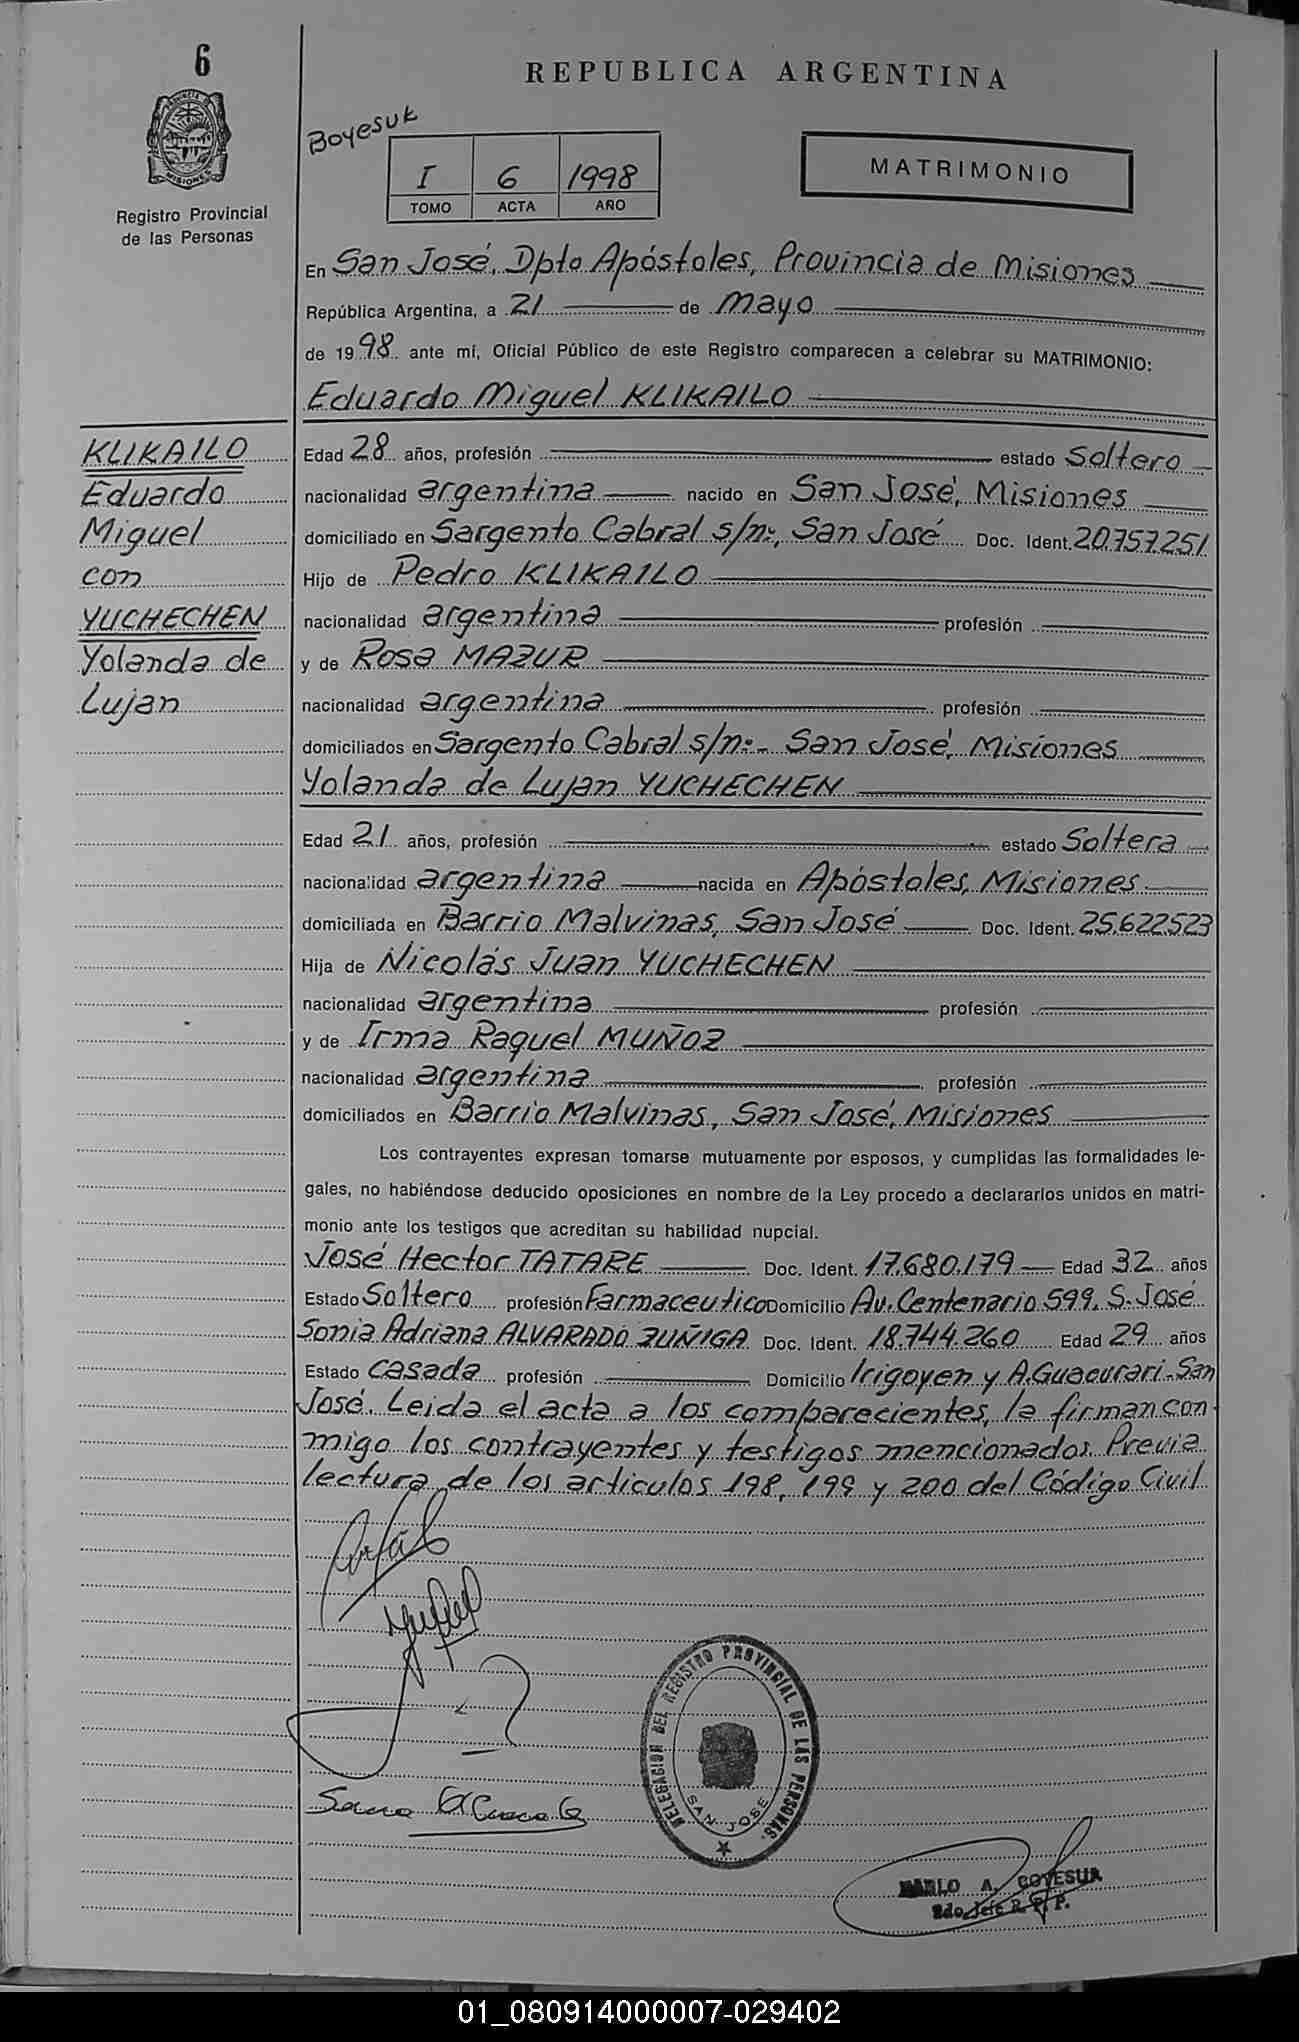 6
REPUBLICA ARGENTINA
PROVINCIA DE
MISIONES
Boyesuk
MATRIMONIO
I 6 1998
TOMO ACTA AÑO
Registro Provincial
de las Personas
En San José, Dpto Apóstoles, Provincia de Misiones
República Argentina, a 21 de Mayo
de 1998 ante mí, Oficial Público de este Registro comparecen a celebrar su MATRIMONIO:
Eduardo Miguel KLIKAILO
KLIKAILO
Eduardo
Miguel
con
YUCHECHEN
Yolanda de
Lujan
Edad 28 años, profesión estado Soltero
nacionalidad argentina nacido en San José, Misiones
domiciliado en Sargento Cabral s/nº, San José Doc. Ident. 20.757.251
Hijo de Pedro KLIKAILO
nacionalidad argentina profesión
y de Rosa MAZUR
nacionalidad argentina profesión
domiciliados en Sargento Cabral s/nº- San José, Misiones
Yolanda de Lujan YUCHECHEN
Edad 21 años, profesión estado Soltera
nacionalidad argentina nacida en Apóstoles, Misiones
domiciliada en Barrio Malvinas, San José Doc. Ident. 25.622523
Hija de Nicolás Juan YUCHECHEN
nacionalidad argentina profesión
y de Irma Raquel MUÑOZ
nacionalidad argentina profesión
domiciliados en Barrio Malvinas, San José, Misiones
Los contrayentes expresan tomarse mutuamente por esposos, y cumplidas las formalidades le-
gales, no habiéndose deducido oposiciones en nombre de la Ley procedo a declararlos unidos en matri-
monio ante los testigos que acreditan su habilidad nupcial.
José Hector TATARE Doc. Ident. 17.680.179 Edad 32 años
Estado Soltero profesión Farmaceutico Domicilio Av. Centenario 599, S. José
Sonia Adriana ALVARADO ZUÑIGA Doc. Ident. 18.744.260 Edad 29 años
Estado Casada profesión Domicilio Irigoyen y A. Guacurari-San
José. Leida el acta a los comparecientes, la firman con
migo los contrayentes y testigos mencionados. Previa
lectura de los articulos 198, 199 y 200 del Código Civil
DELEGACION DEL REGISTRO PROVINCIAL DE LAS PERSONAS.
SAN JOSE
A.
2do. Jefe R. P. P.
01_080914000007-029402